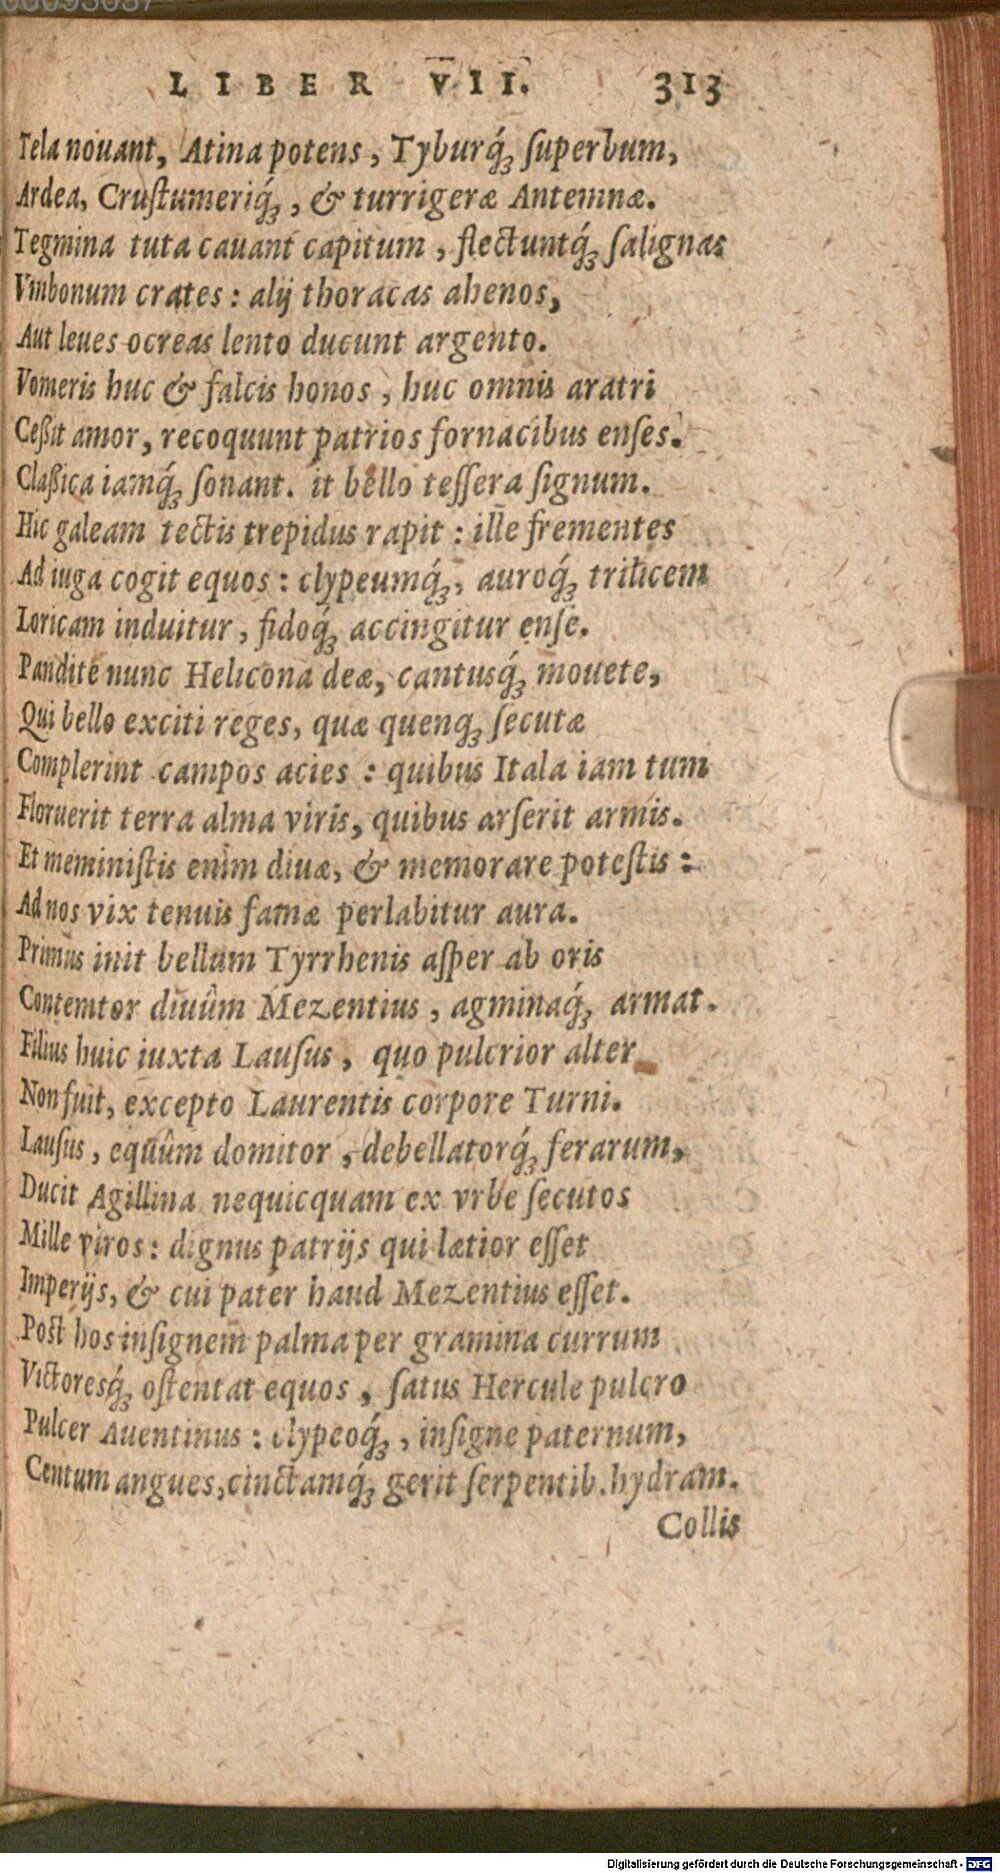 LIBER VII. 313
Tela nouant, Atina potens, Tyburq́ꝫ ſuperbum,
Ardea, Cruſtumeriq́ꝫ, & turrigeræ Antemnæ.
Tegmina tuta cauant capitum, flectuntq́ꝫ ſalignas
Vmbonum crates: alij thoracas ahenos,
Aut leues ocreas lento ducunt argento.
Vomeris huc & falcis honos, huc omnis aratri
Ceßit amor, recoquunt patrios fornacibus enſes.
Claßica iamq́ꝫ ſonant. it bello teſſera ſignum.
Hic galeam tectis trepidus rapit: ille frementes
Ad iuga cogit equos: clypeumq́ꝫ, auroq́ꝫ trilicem
Loricam induitur, fidoq́ꝫ accingitur enſe.
Pandite nunc Helicona deæ, cantusq́ꝫ mouete,
Qui bello exciti reges, quæ quenqꝫ ſecutæ
Complerint campos acies: quibus Itala iam tum
Floruerit terra alma viris, quibus arſerit armis.
Et meminiſtis enim diuæ, & memorare poteſtis:
Ad nos vix tenuis famæ perlabitur aura.
Primus init bellum Tyrrhenis aſper ab oris
Contemtor diuûm Mezentius, agminaq́ꝫ armat.
Filius huic iuxta Lauſus, quo pulcrior alter
Non fuit, excepto Laurentis corpore Turni.
Lauſus, equûm domitor, debellatorq́ꝫ ferarum,
Ducit Agillina nequicquam ex vrbe ſecutos
Mille viros: dignus patrijs qui lætior eſſet
Imperijs, & cui pater haud Mezentius eſſet.
Poſt hos inſignem palma per gramina currum
Victoresq́ꝫ oſtentat equos, ſatus Hercule pulcro
Pulcer Auentinus: clypeoq́ꝫ, inſigne paternum,
Centum angues, cinctamq́ꝫ gerit ſerpentib. hydram.
Collis
Digitalisierung gefördert durch die Deutsche Forschungsgemeinschaft - DFG